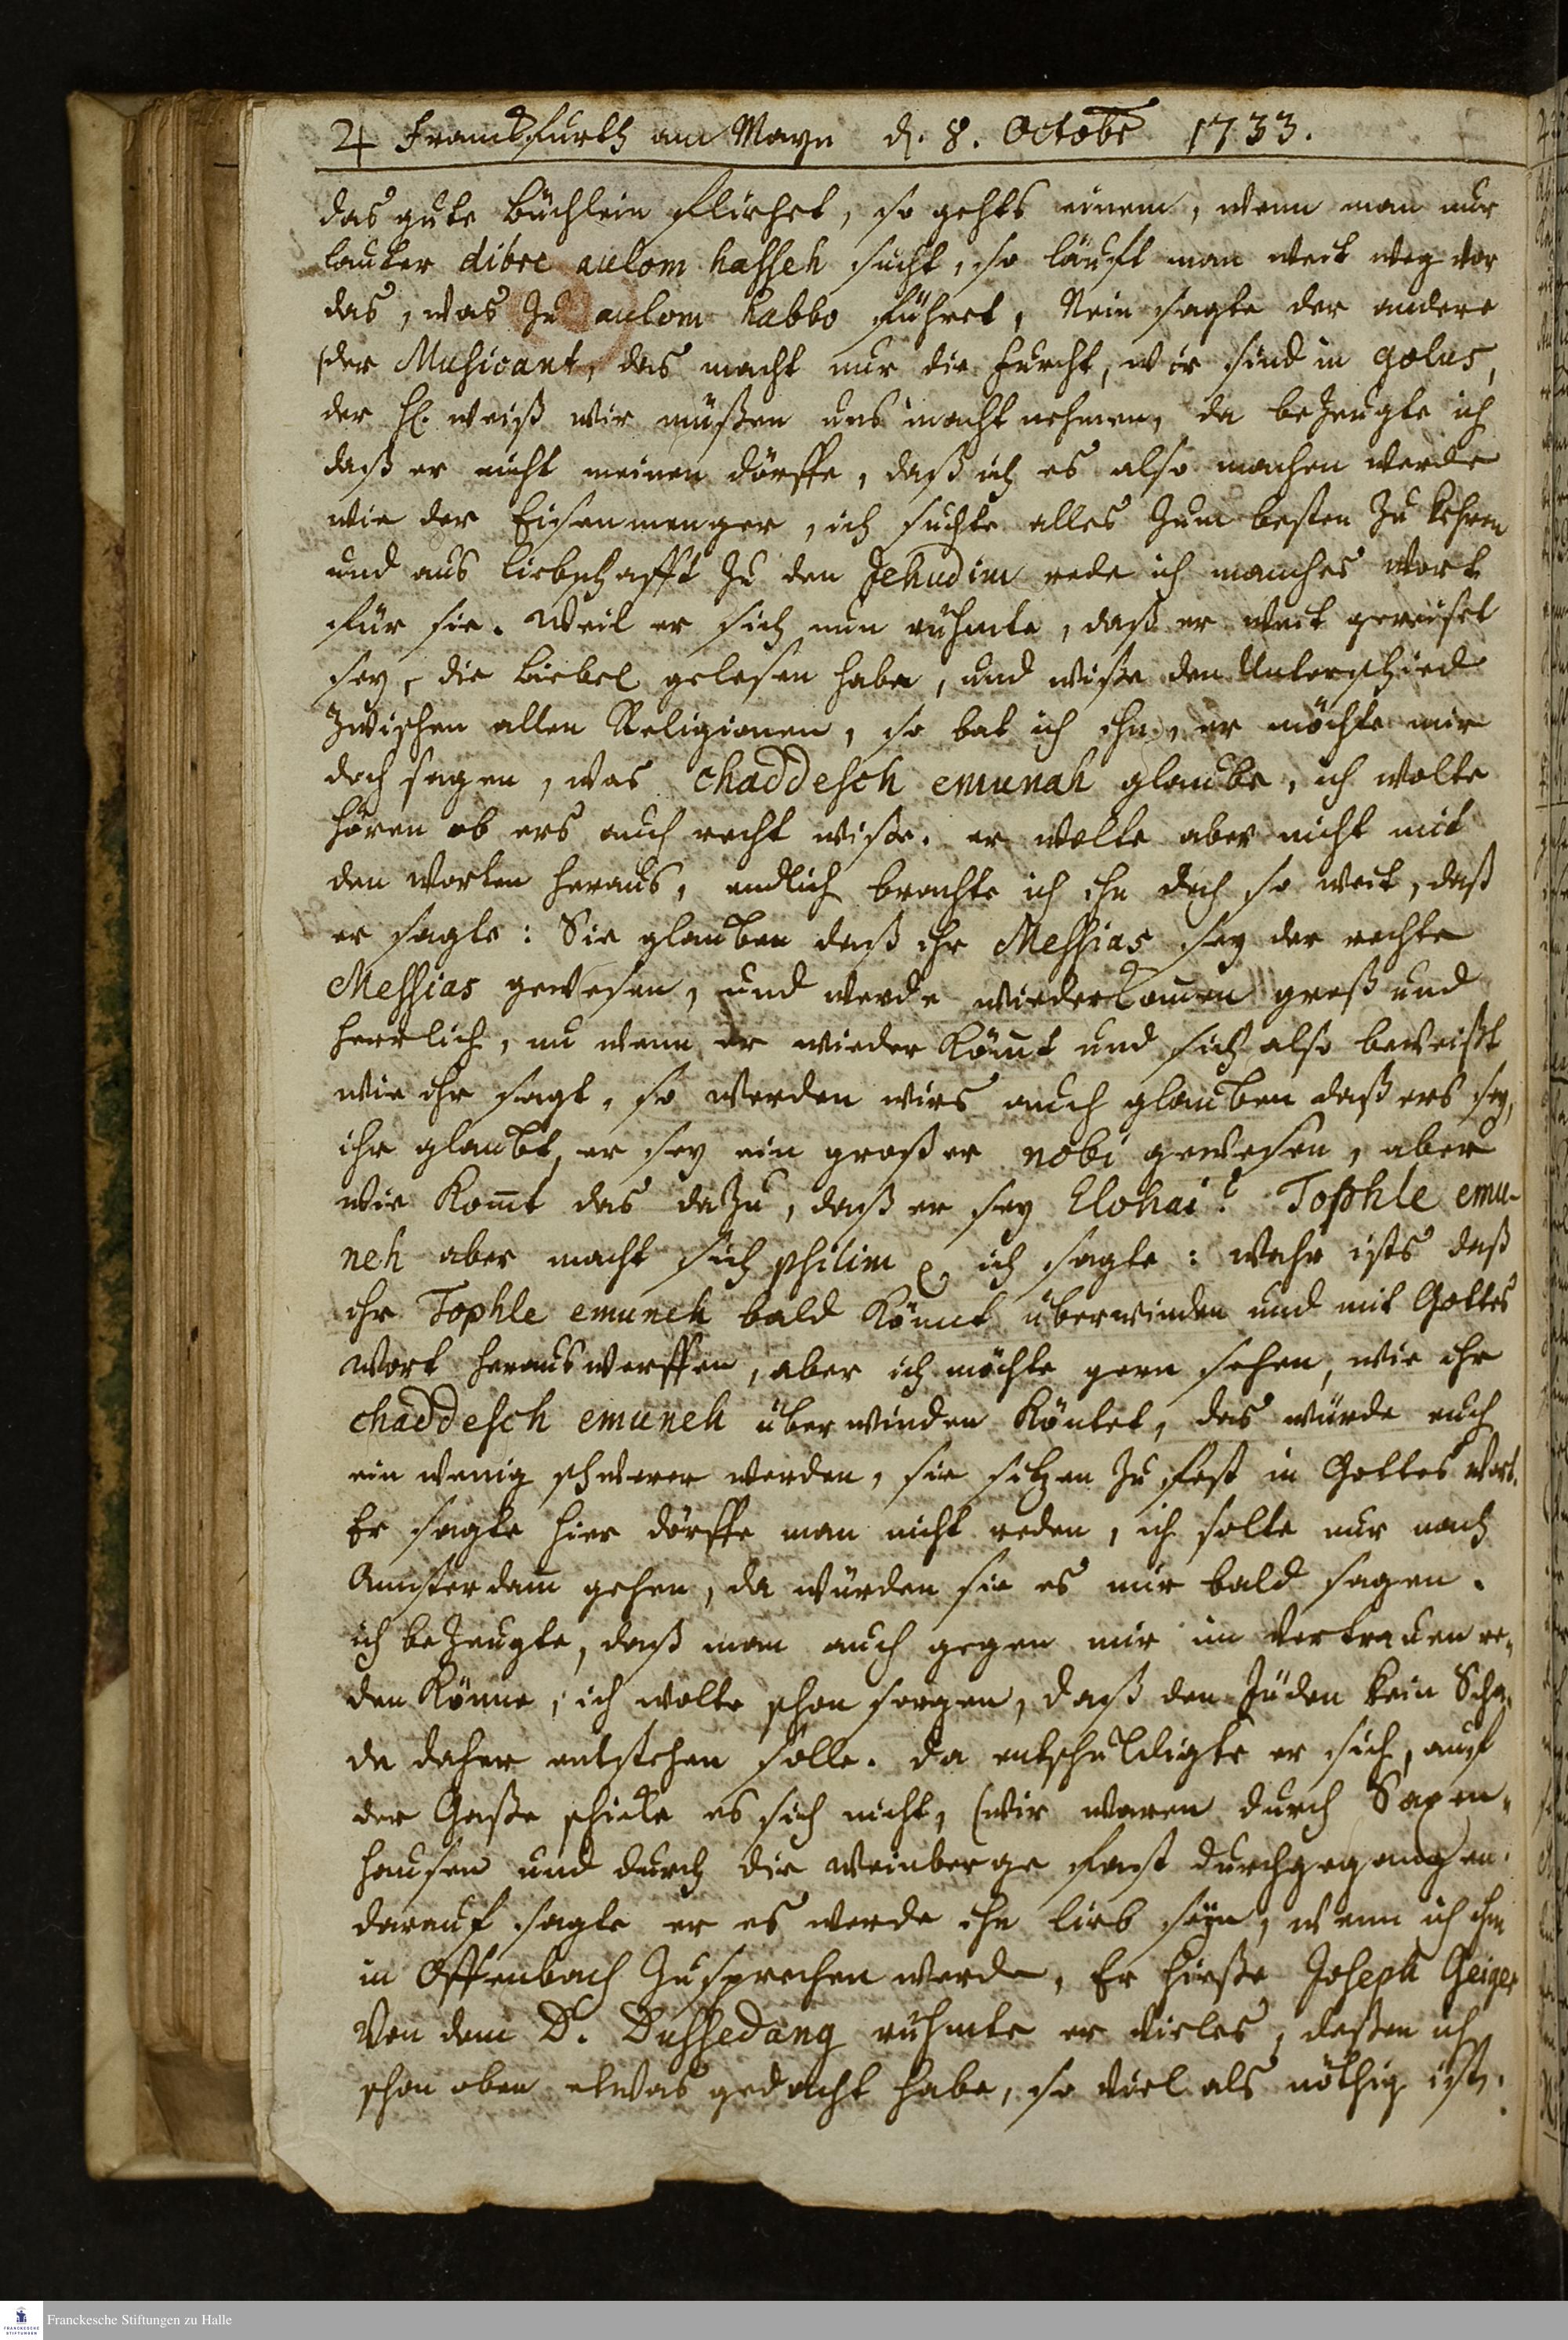 ♃ Franckfurth am Mayn d. 8. Octobr 1733.
das gute Büchlein fliehet, so gehts einem, wenn man nur
lauter dibre aulom hasseh sucht, so läuft man weit weg vor
das, was zu aulom habbo führet, Nein sagte der andere
(der Musicant, das macht nur die Furcht, wir sind in golus,
der H. weiß wir müßen uns in acht nehmen, da bezeugte ich
daß er nicht meinen dörffe, daß ich es also machen werde
wie der Eisenmenger, ich suchte alles zum besten zu kehren
und aus liebschafft zu den Jehudim rede ich manches Wort
für sie. Weil er sich nun rühmte, daß er weit gereiset
sey, die Biebel gelesen habe, und wiße den Unterschied
zwischen allen Religionen, so bat ich ihn, er möchte mir
doch sagen, was chaddesch emunah glaube, ich wolte
hören ob ers auch recht wiße. er wolte aber nicht mit
den Worten heraus, endlich brachte ich ihn doch so weit, daß
er sagte: Sie glauben daß ihr Messias sey der rechte
Messias gewesen, und werde wiederkommen groß und
herrlich, nu wenn er wieder kömmt und sich also beweißt
wie ihr sagt, so werden wirs auch glauben daß ers sey,
ihr glaubt, er sey ein großer nobi gewesen, aber
wie komt das dazu, daß er sey Elohai? Tophle emu-
neh aber macht sich philim ich sagte: wahr ists daß
ihr Tophle emuneh bald könnt überwinden und mit Gottes
Wort herauswerffen, aber ich möchte gern sehen, wie ihr
chaddesch emuneh überwinden köntet, das würde euch
ein wenig schwerer werden, sie sitzen zu fest in Gottes Wort.
Er sagte hier dörffe man nicht reden, ich solte nur nach
Amsterdam gehen, da würden sie es mir bald sagen.
ich bezeugte, daß man auch gegen mir im Vertrauen re-
den könne, ich wolte schon sorgen, daß den Juden kein Scha-
de daher entstehen solle. da entschuldigte er sich, auf
der Gaße schicke es sich nicht, (wir waren durch Saxen-
hausen und durch die Weinberge fast durchgegangen.
darauf sagte er es werde ihn lieb seyn, wenn ich ihm
in Offenbach zusprechen werde, Er hieße Joseph Geiger
Von dem D. Dussedang rühmte er vieles, deßen ich
schon oben etwas gedacht habe, so viel als nöthig ist.
Franckesche Stiftungen zu Halle